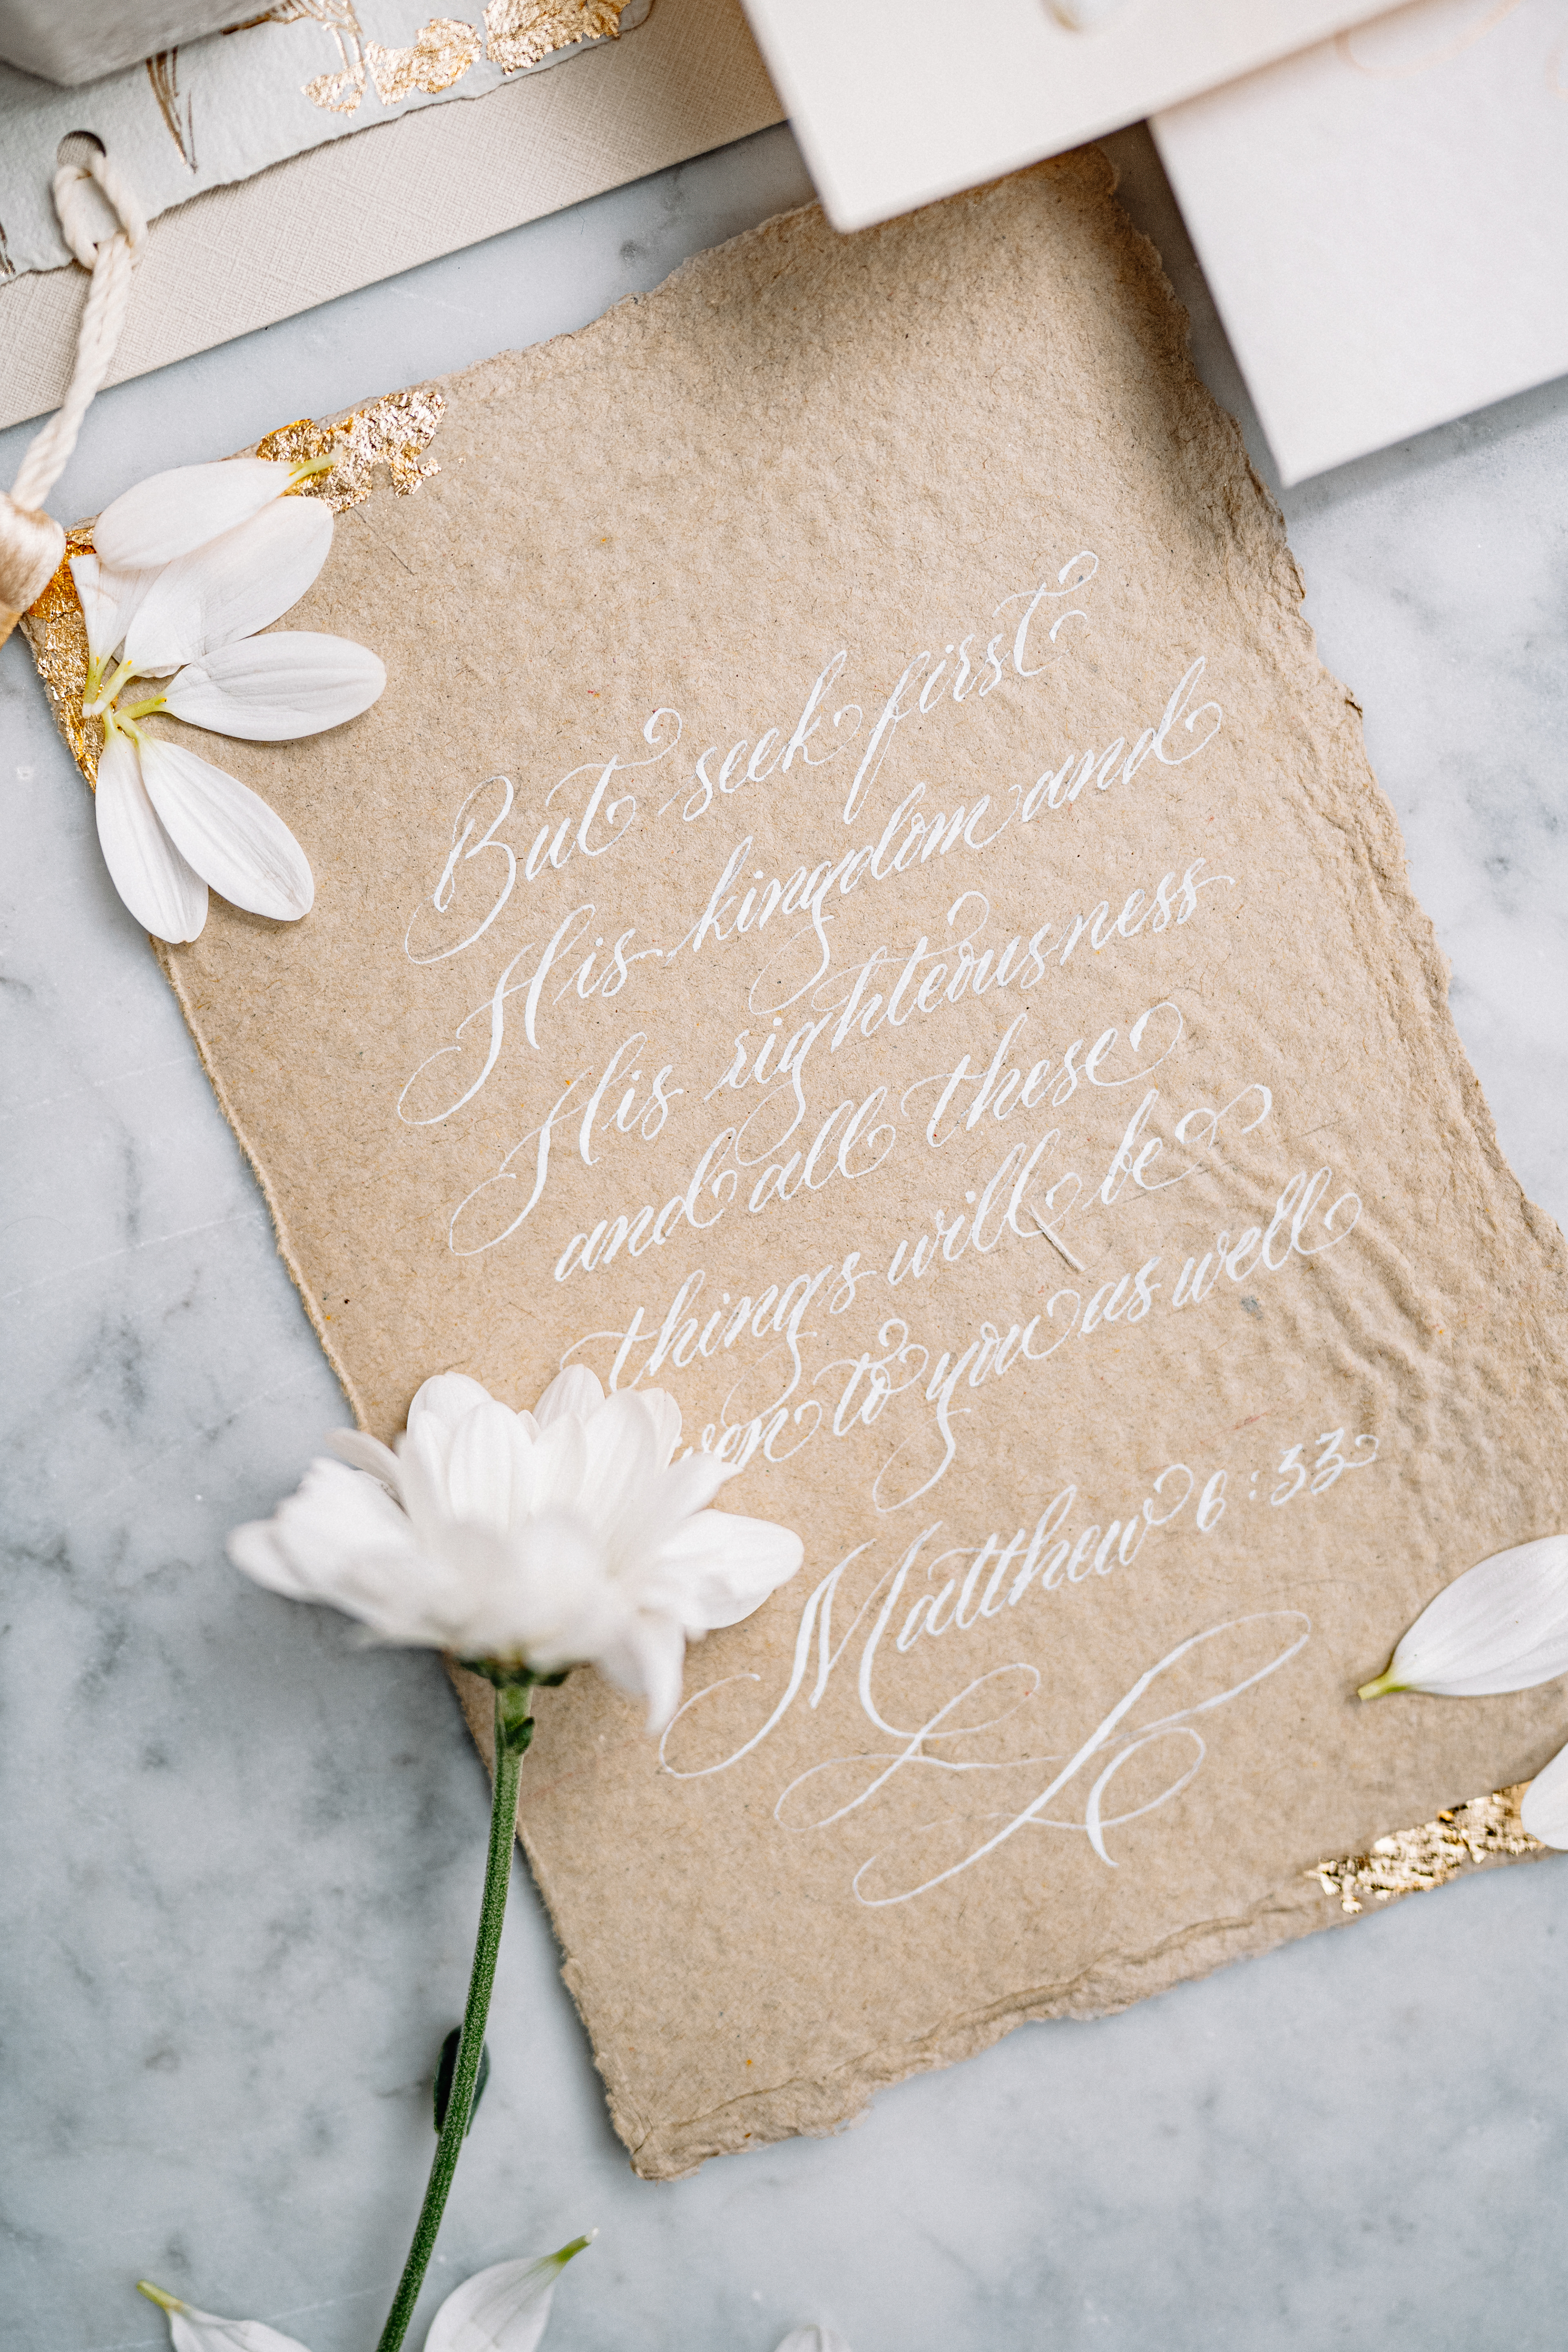 But seek first
His kingdom and
His righteousness
and all these
things will be
to you as well
Matthew 6:33